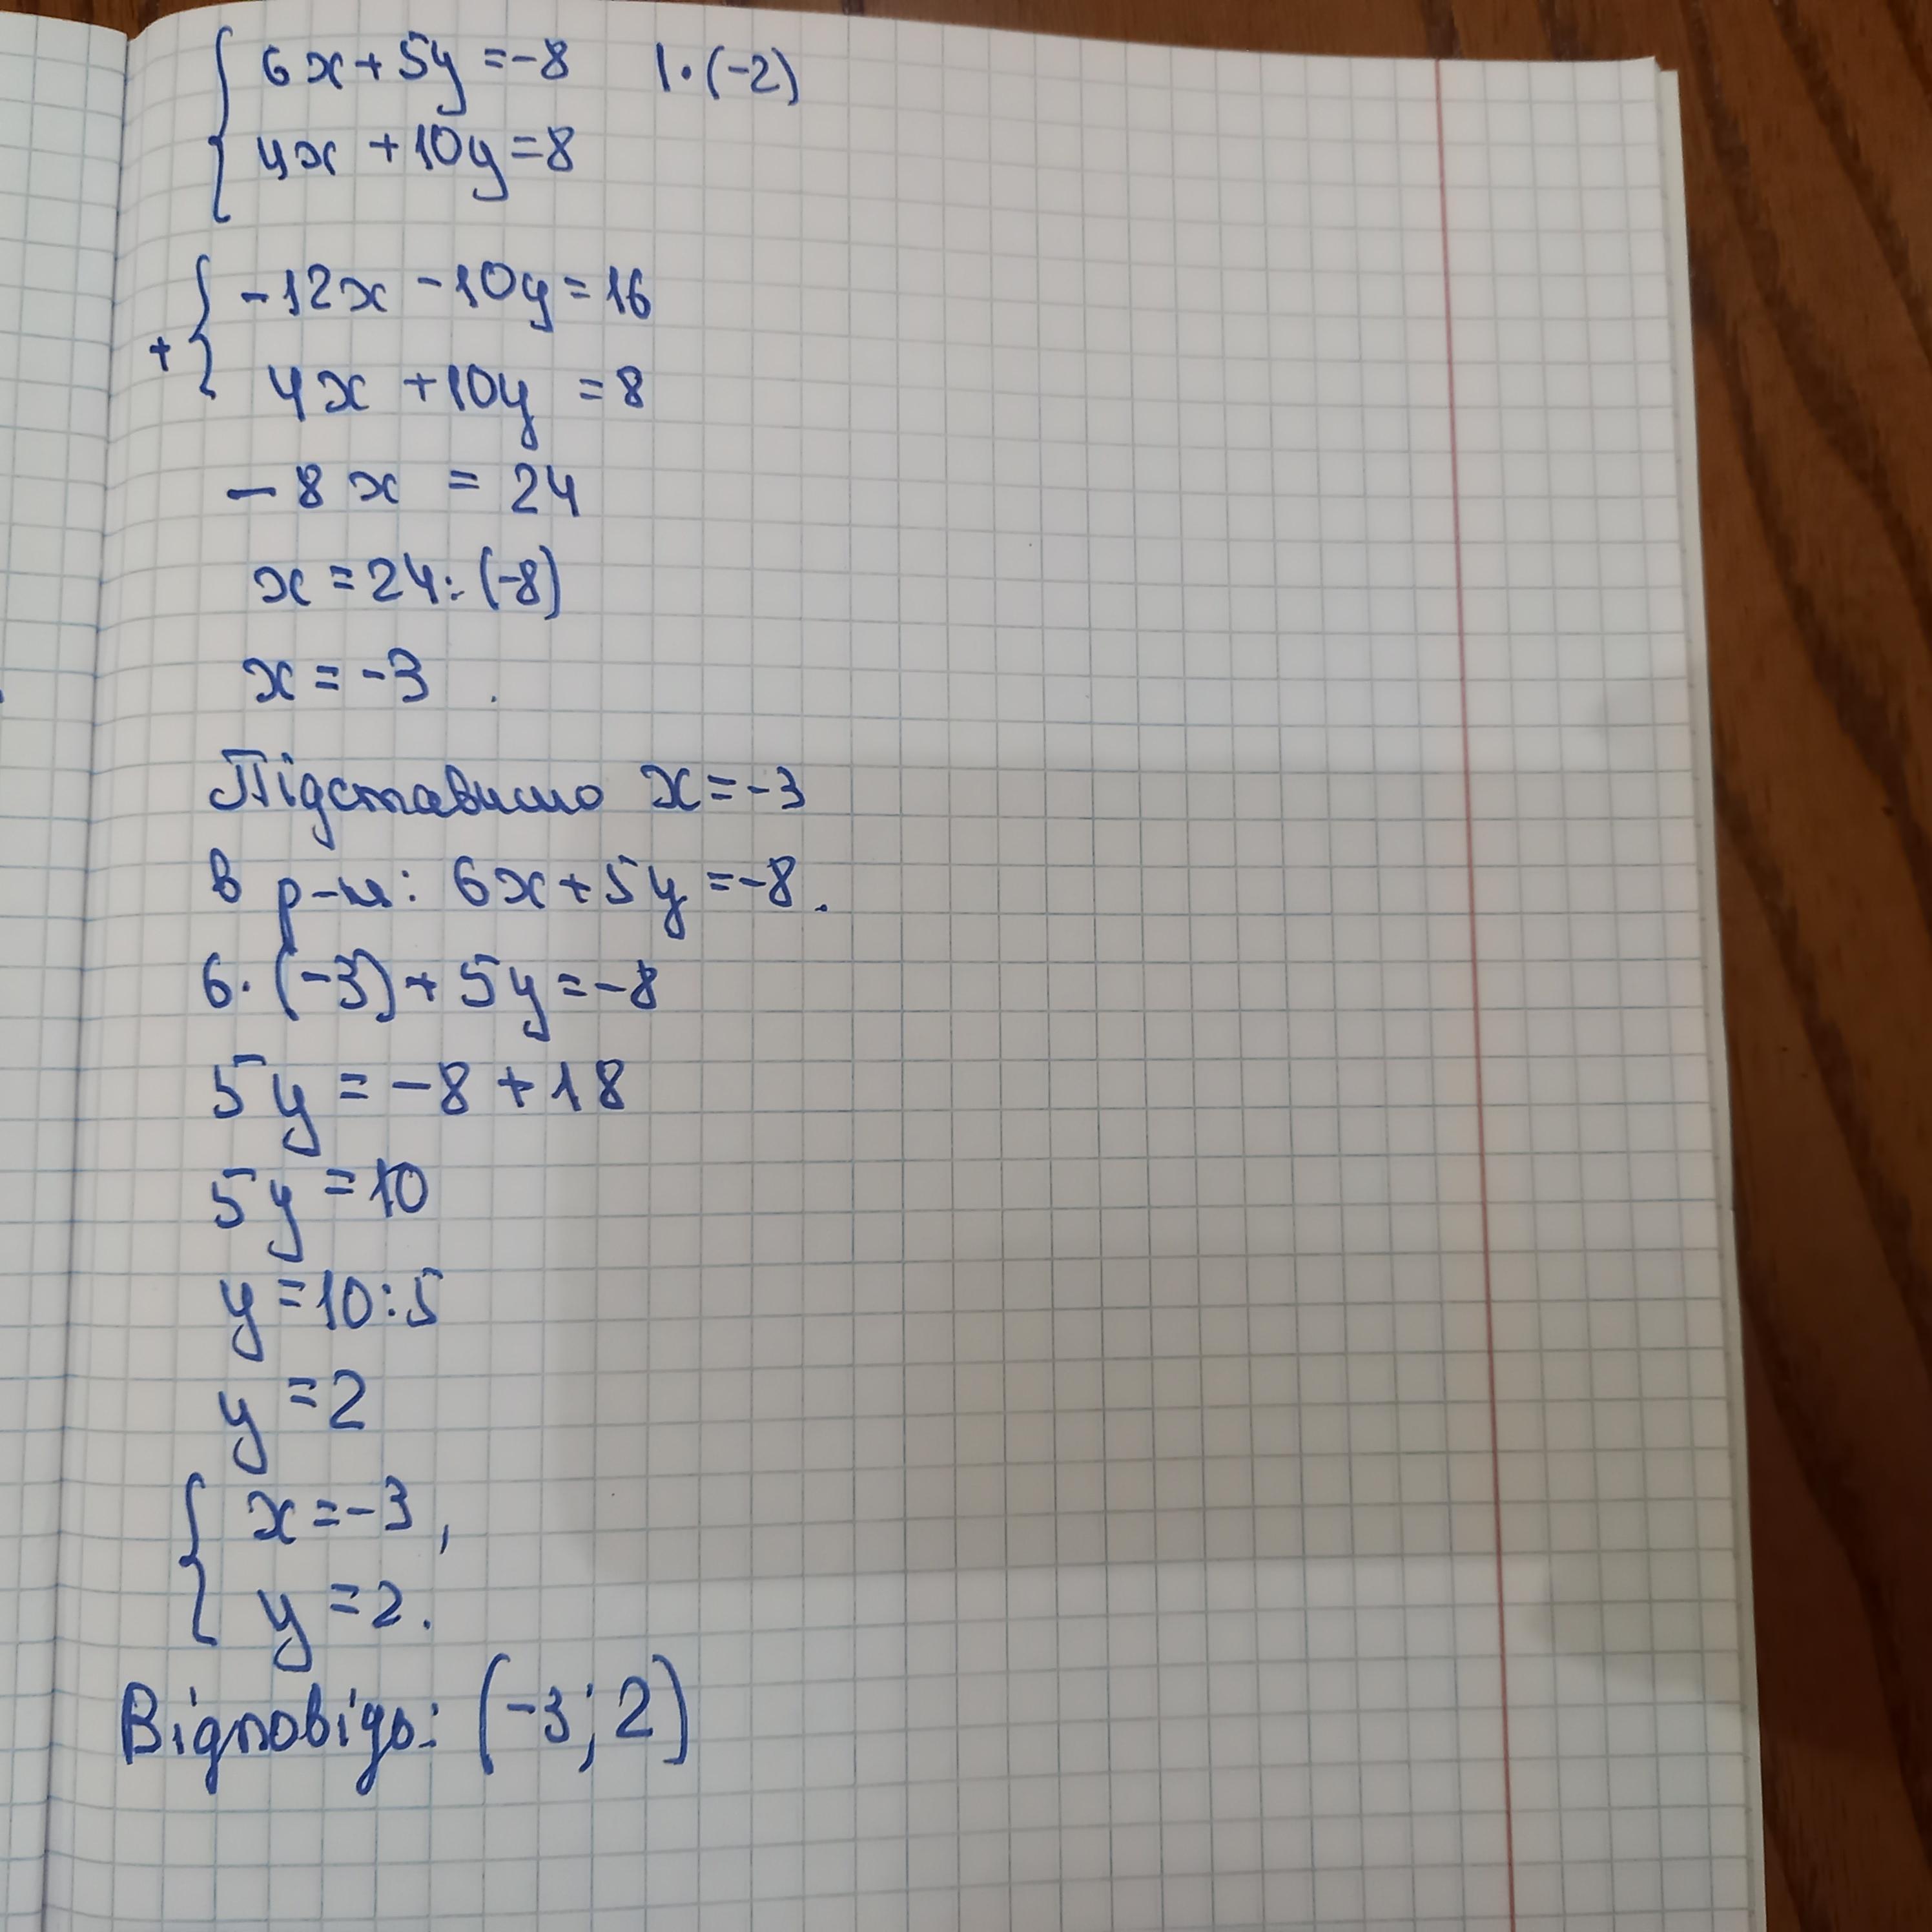 { 6x+5y=-8 |·(-2)
4x+10y=8
+{ -12x-10y=16
4x+10y=8
-8x=24
x=24:(-8)
x=-3
Підставимо x=-3
в р-ня: 6x+5y=-8.
6·(-3)+5y=-8
5y=-8+18
5y=10
y=10:5
y=2
{ x=-3,
y=2.
Відповідь: (-3; 2)